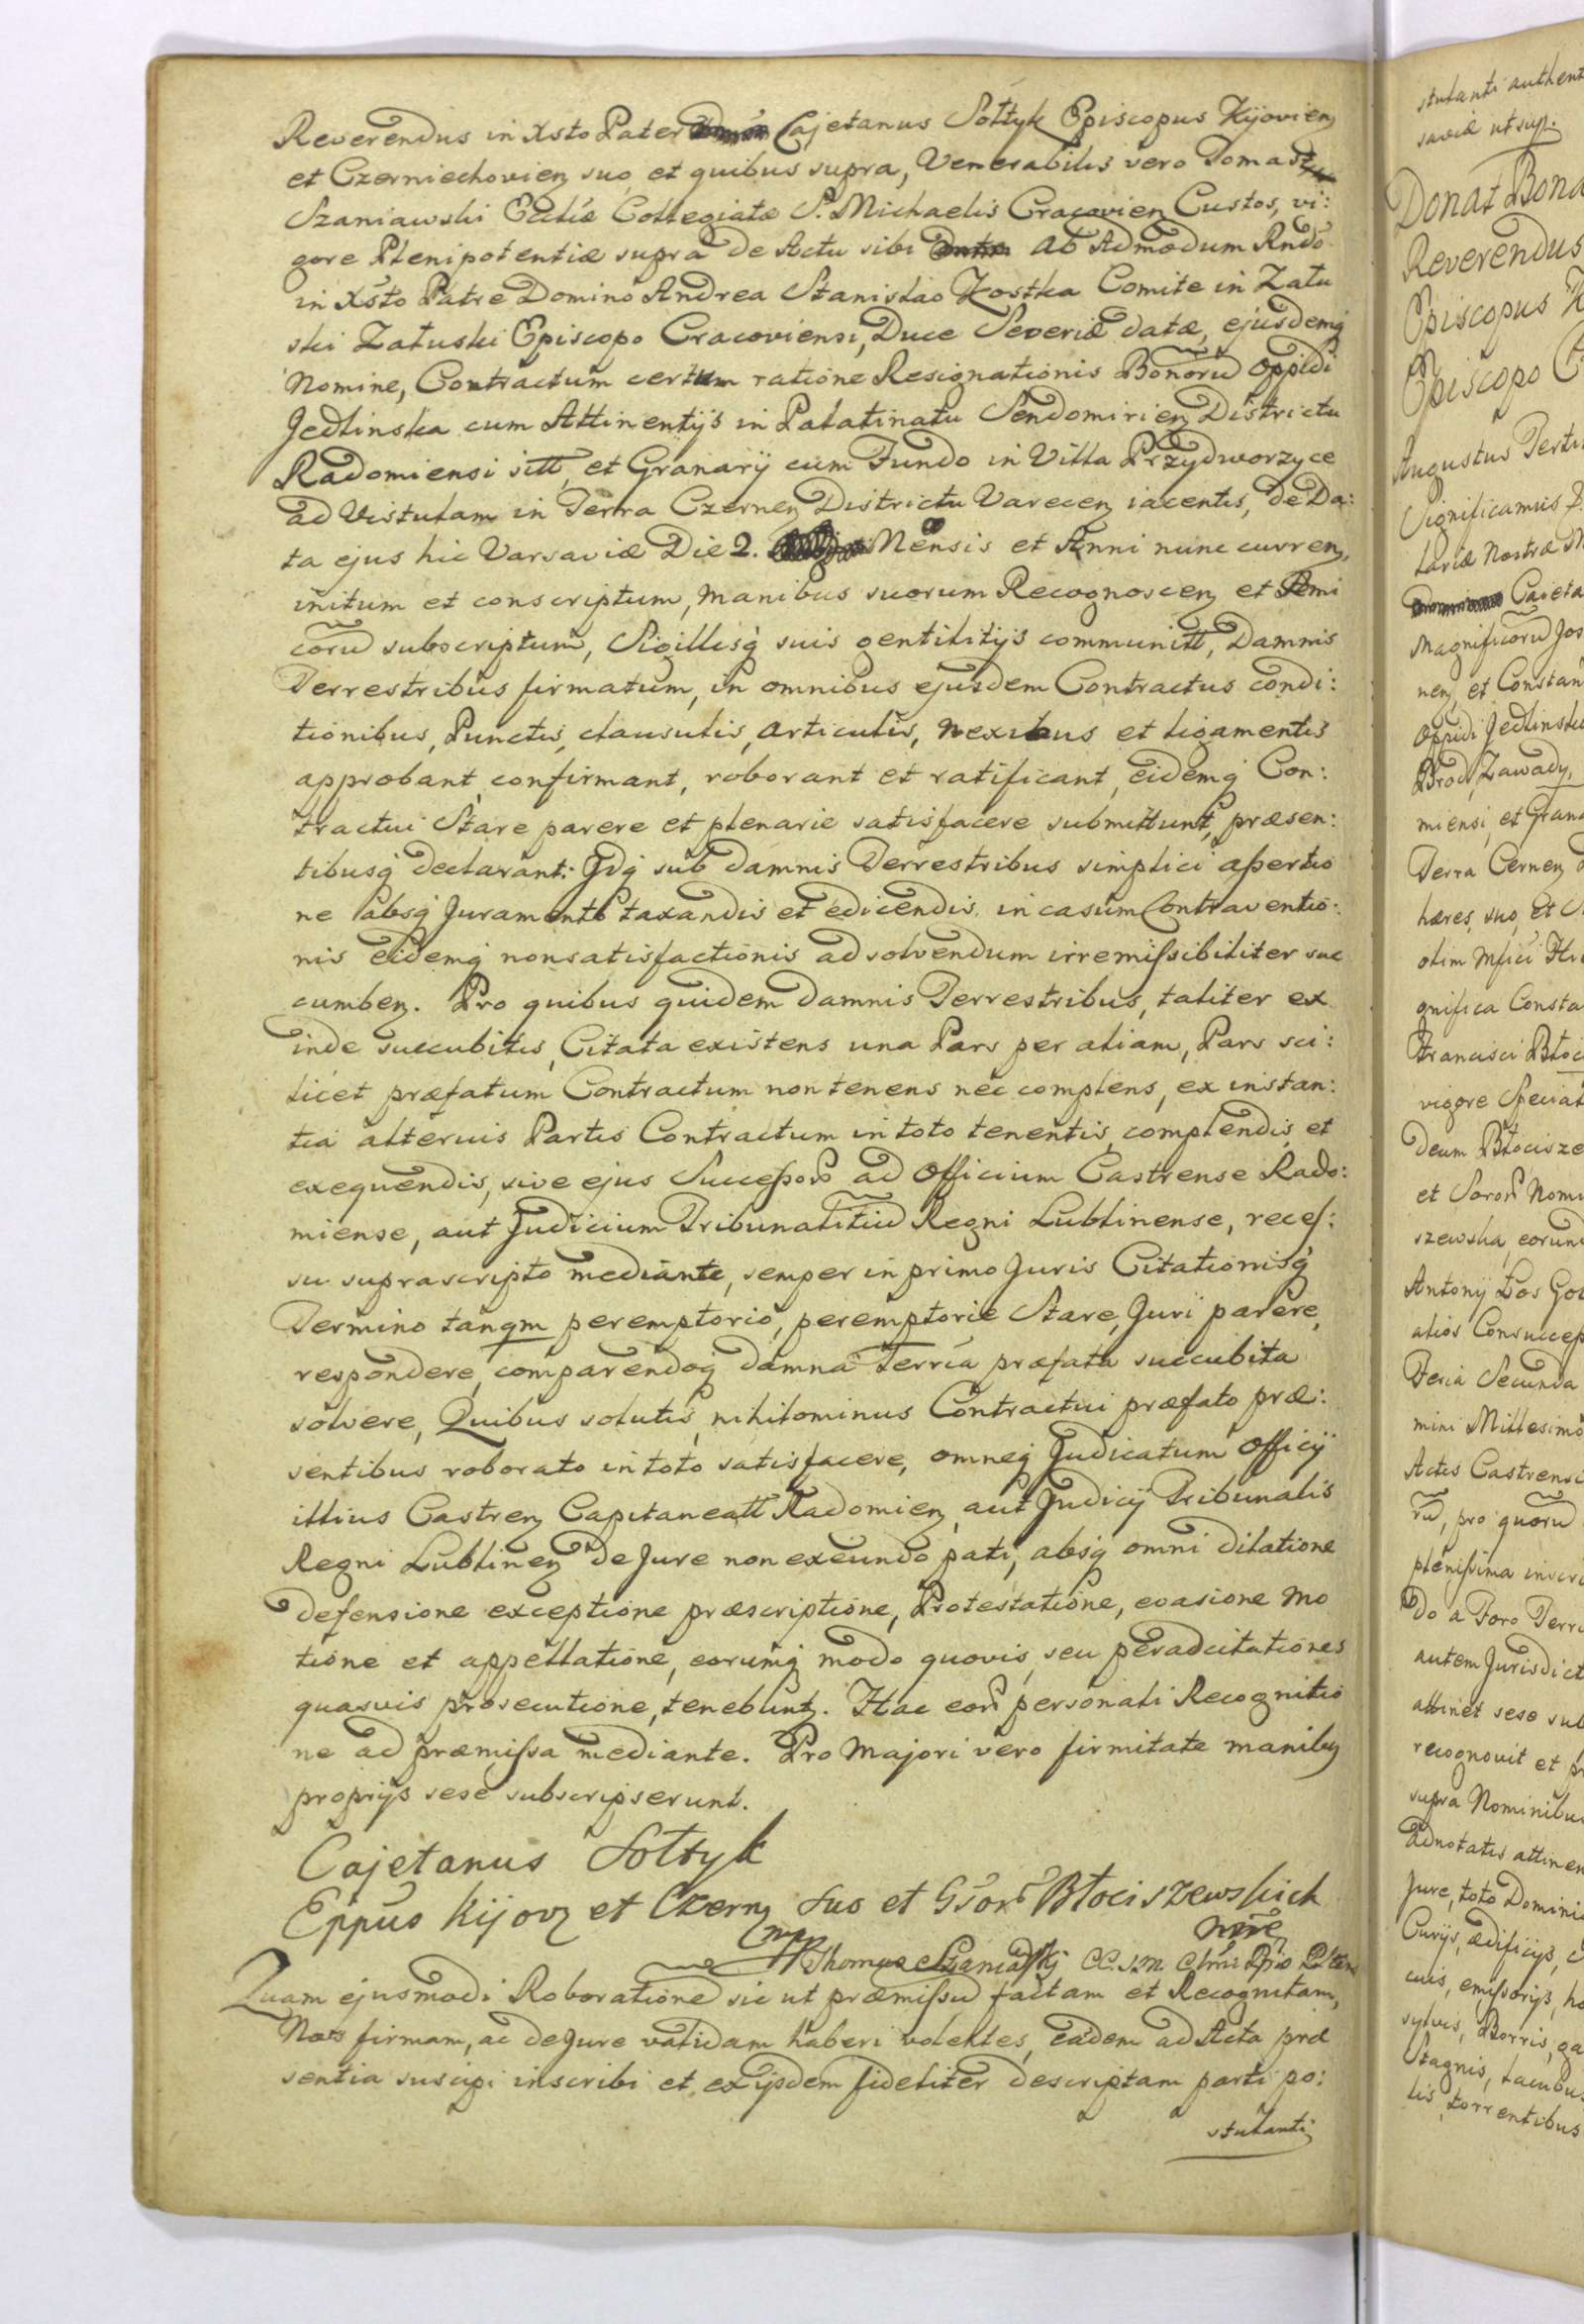 Reverendus in Xsto Pater Cajetanus Sołtyk Episcopus Kijovien
et Czerniechovien suo et quibus supra, Venerabilis vero Tomas
Szaniawski Ecclíæ Collegiatæ S. Michaelis Cracovien Custos, vi:
gore Plenipotentiæ supra de Actu sibi ab Admodum Rndo
in Xsto Patre Domino Andrea Stanislao Kostka Comite in Zału
ski Załuski Episcopo Cracoviensi, Duce Severiæ datæ, ejusdemq
Nomine, Contractum certum ratione Resignationis Bonorũ Oppidi
Jedlinska cum Attinentijs in Palatinatu Sendomirien Districtu
Radomiensi sitt, et Granarij cum Fundo in Villa Przydworzyce
ad Vistulam in Terra Czernen Districtu Varecen iacentis, de Da:
ta ejus hic Varsaviæ Die 2. Mensis et Anni nunc curren,
initum et conscriptum, manibus suorum Recognoscen et Ami
corũ subscriptum, Sigillisq suis gentilitijs communitt, Damnis
Terrestribus firmatum, in omnibus ejusdem Contractus condi:
tionibus, Punctis, clausulis, articulis, nexibus et ligamentis
approbant, confirmant, roborant et ratificant, eidemq Con:
tractui Stare parere et plenarie satisfacere submittunt, præsen:
tibusq declarant: Idq sub damnis Terrestribus simplici assertio
ne absq Juramento taxandis et edicendis in casum Contraventio:
nis eidemq nonsatisfactionis ad solvendum irremissibiliter suc
cumben. Pro quibus quidem damnis Terrestribus, taliter ex
inde succubitis, Citata existens una Pars per aliam, Pars sci:
licet præfatum Contractum non tenens nec complens, ex instan:
tia alterius Partis Contractum in toto tenentis, complendis, et
exequendis, sive ejus Successor ad Officium Castrense Rado:
miense, aut Judicium Tribunalitiũ Regni Lublinense, reces:
su suprascripto mediante, semper in primo Juris Citationisq
Termino tanqm peremptorio, peremptorie Stare, Juri parere,
respondere, comparendoq damna Terría præfata succubita
solvere, Quibus solutis, nihilominus Contractui præfato præ:
sentibus roborato in toto satisfacere, omneq Judicatum Officij
illius Castren Capitaneatt Radomien, aut Judicij Tribunalis
Regni Lublinen de Jure non exeundo pati, absq omni dilatione
defensione exceptione præscriptione, Protestatione, evasione mo
tione et appellatione, eorumq modo quovis, seu peradcitationes
quasvis prosecutione, tenebunt. Hac eor personali Recognitio
ne ad præmissa mediante. Pro Majori vero firmitate manibq
proprijs sese subscripserunt.
Cajetanus Sołtyk
Eppus Kijov et Czern suo et Błociszewskich
nõe
Thomas Szaniawski
Quam ejusmodi Roborationẽ sic ut præmissũ factam et Recognitam,
Nos firmam, ac de Jure validam haberi volentes, eadem ad Acta præ
sentia suscipi inscribi et exijsdem fideliter descriptam parti po:
stulanti
stulanti authent
saviæ ut sup.
Donat Bona
Reverendus
Episcopus K
Episcopo C
Augustus Terti
Significamus
tariæ Nostræ
Caieta
Magnificorũ Jos
nen, et Constan
Oppidi Jedlinsk
Brod, Zawady,
miensi, et Grana
Terra Cernen
hæres, suo, et
olim Mfici
gnifica Consta
Francisci Błoci
vigore Special
deum Błocisze
et Soror Nomi
szewska, eorund
Antonij Łos
alios Consucces
Feria Secunda
mini Millesimo
Actis Castrensi
rũ, pro quorũ
plenissima inscri
do a Foro Terr
autem Jurisdict
attinet sese sub
recognovit et p
supra Nominibus
adnotatis attinen
Jure, toto Domini
Curijs, ædificijs,
cuis, emissorijs, ho
sylvis, Borris, ga
Stagnis, lacubus
lis, torrentibus